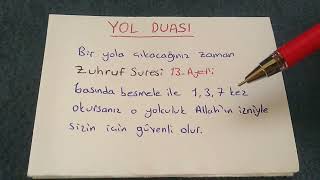 YOL DUASI
Bir yola çıkacağınız zaman
Zuhruf Suresi 13. Ayeti
başında besmele ile 1, 3, 7 kez
okursanız o yolculuk Allah'ın izniyle
sizin için güvenli olur.